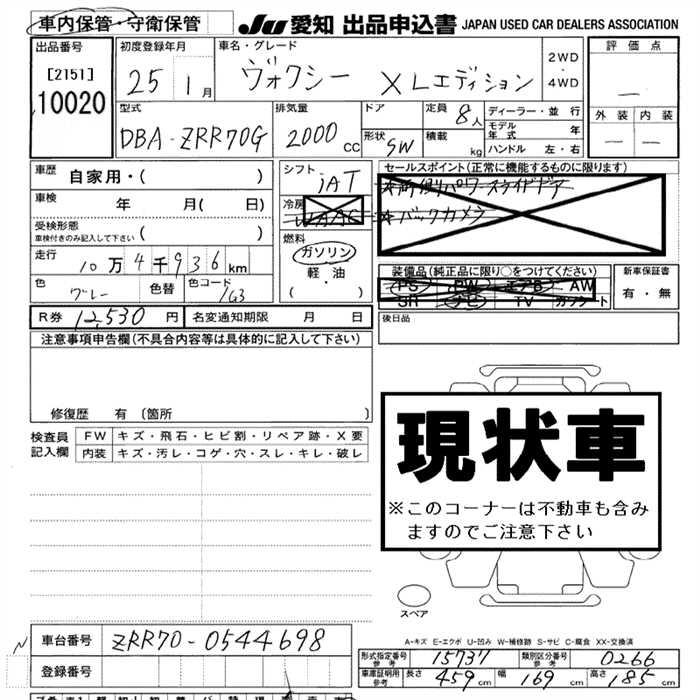 車内保管・守衛保管
JU 愛知 出品申込書 JAPAN USED CAR DEALERS ASSOCIATION
出品番号
[2151]
10020
初度登録年月
25 1月
車名・グレード
ヴォクシー XLエディション
2WD
・
4WD
評価点
—
外装 内装
— —
型式
DBA-ZRR70G
排気量
2000 CC
ドア
形状 SW
定員 8人
積載 kg
ディーラー・並行
モデル年式 年
ハンドル 左・右
車歴 自家用・( )
車検 年 月( 日)
受検形態
車検付きのみ記入して下さい ( )
走行 10万4千936km
色 グレー 色替 色コード 1G3
シフト iAT
冷房 WAAC
燃料
ガソリン
軽・油
( ・ )
セールスポイント(正常に機能するものに限ります)
バックカメラ
装備品(純正品に限り○をつけてください)
PS PW エアB AW
SR ナビ TV カワシート
新車保証書
有・無
R券 12,530円 名変通知期限 月 日
後日品
注意事項申告欄(不具合内容等は具体的に記入して下さい)
修復歴 有 (箇所 )
検査員記入欄
FW キズ・飛石・ヒビ割・リペア跡・X要
内装 キズ・汚レ・コゲ・穴・スレ・キレ・破レ
現状車
※このコーナーは不動車も含み
ますのでご注意下さい
スペア
A-キズ E-エクボ U-凹み W-補修跡 S-サビ C-腐食 XX-交換済
N
車台番号 ZRR70-0544698
登録番号
形式指定番号 参考 15737 類別区分番号 参考 0266
車庫証明用 参考 長さ 459cm 幅 169cm 高さ 185cm